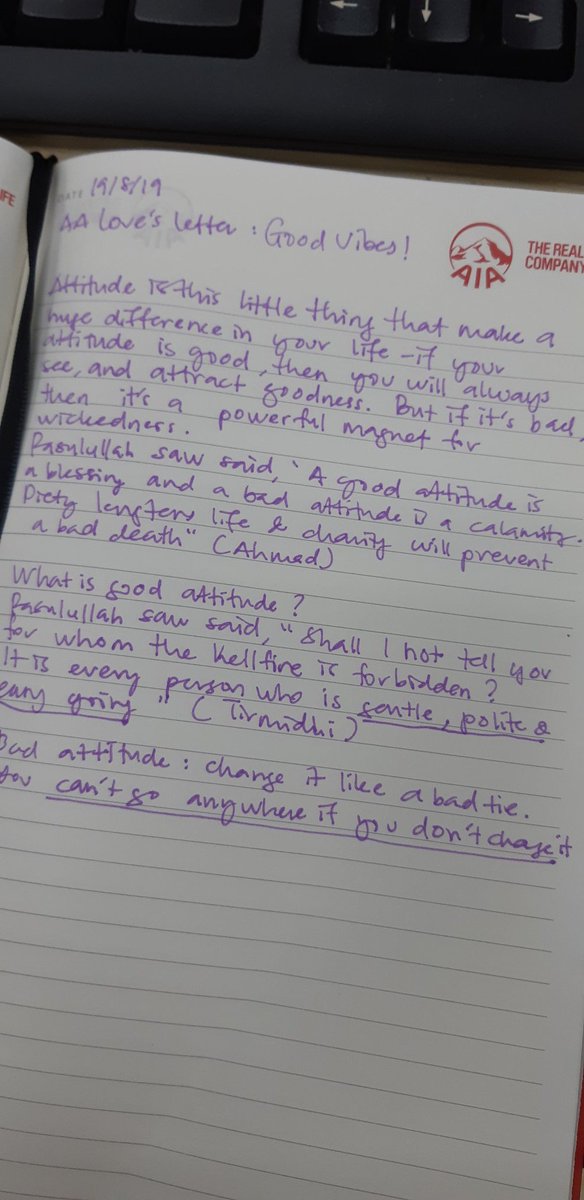 IFE
DATE 19/8/19
AIA
THE REAL
COMPANY
AA Love's letter : Good Vibes!
Attitude is this little thing that make a
huge difference in your life - if your
attitude is good, then you will always
see, and attract goodness. But if it's bad,
then it's a powerful magnet for
wickedness.
Rasulullah saw said, "A good attitude is
a blessing and a bad attitude is a calamity.
Piety lengtens life & charity will prevent
a bad death" (Ahmad)
What is good attitude?
Rasulullah saw said, "Shall I not tell you
for whom the Hellfire is forbidden?
It is every person who is gentle, polite &
easy going" (Tirmidhi)
Bad attitude : change it like a bad tie.
You can't go anywhere if you don't change it